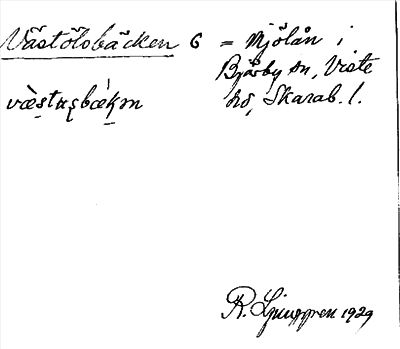 Västölsbäcken 6 = Mjölån i
Bjärby sn, Viste
hd, Skarab. l.
væ̀stusbækm
R. Ljunggren 1929